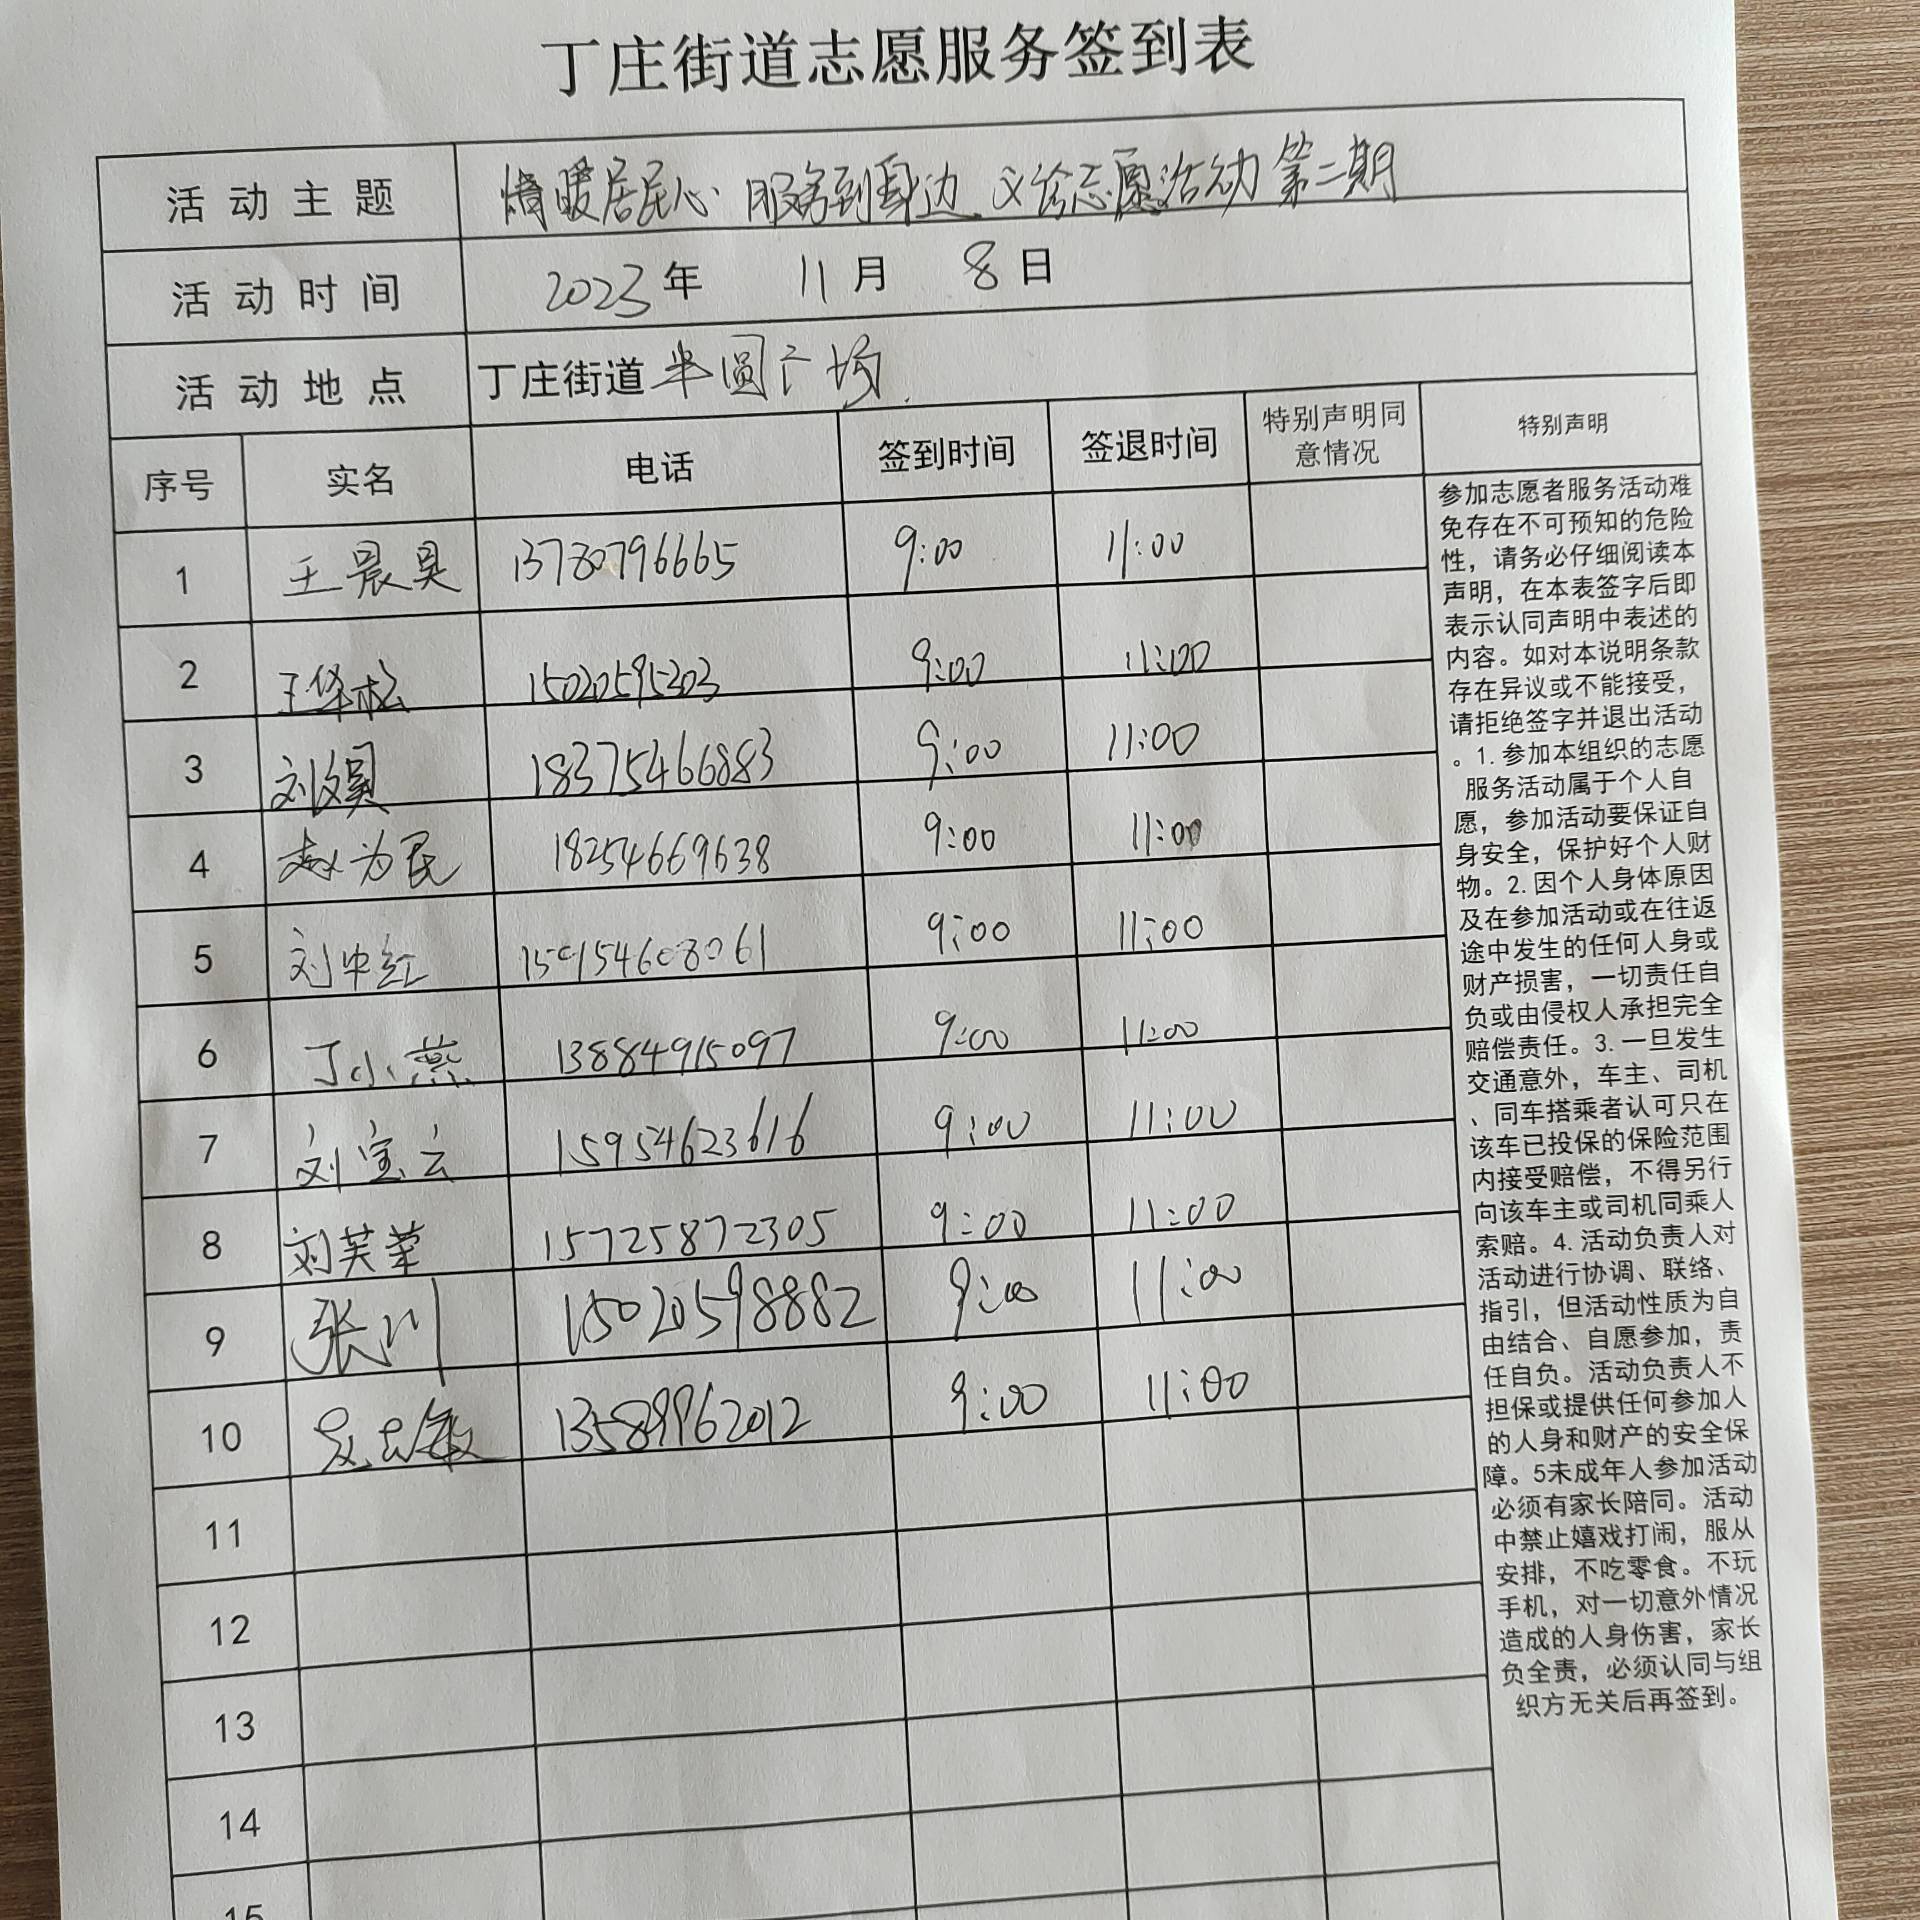 丁庄街道志愿服务签到表
活动主题 情暖居民心 服务到身边 义诊志愿活动第二期
活动时间 2023年 11月 8日
活动地点 丁庄街道半圆广场
序号 实名 电话 签到时间 签退时间 特别声明同意情况 特别声明
1 王晨昊 13780796665 9:00 11:00
2 王华松 15020595303 9:00 11:00
3 刘汶昊 18375466883 9:00 11:00
4 赵为民 18254669638 9:00 11:00
5 刘中红 9:00 11:00
6 丁小燕 13884915097 9:00 11:00
7 刘宝云 15954623616 9:00 11:00
8 刘芙蓉 15725872305 9:00 11:00
9 张川 15020598882 9:00 11:00
10 13589962012 9:00 11:00
11
12
13
14
15
参加志愿者服务活动难
免存在不可预知的危险
性，请务必仔细阅读本
声明，在本表签字后即
表示认同声明中表述的
内容。如对本说明条款
存在异议或不能接受，
请拒绝签字并退出活动
。1.参加本组织的志愿
服务活动属于个人自
愿，参加活动要保证自
身安全，保护好个人财
物。2.因个人身体原因
及在参加活动或在往返
途中发生的任何人身或
财产损害，一切责任自
负或由侵权人承担完全
赔偿责任。3.一旦发生
交通意外，车主、司机
、同车搭乘者认可只在
该车已投保的保险范围
内接受赔偿，不得另行
向该车主或司机同乘人
索赔。4.活动负责人对
活动进行协调、联络、
指引，但活动性质为自
由结合、自愿参加，责
任自负。活动负责人不
担保或提供任何参加人
的人身和财产的安全保
障。5未成年人参加活动
必须有家长陪同。活动
中禁止嬉戏打闹，服从
安排，不吃零食。不玩
手机，对一切意外情况
造成的人身伤害，家长
负全责，必须认同与组
织方无关后再签到。